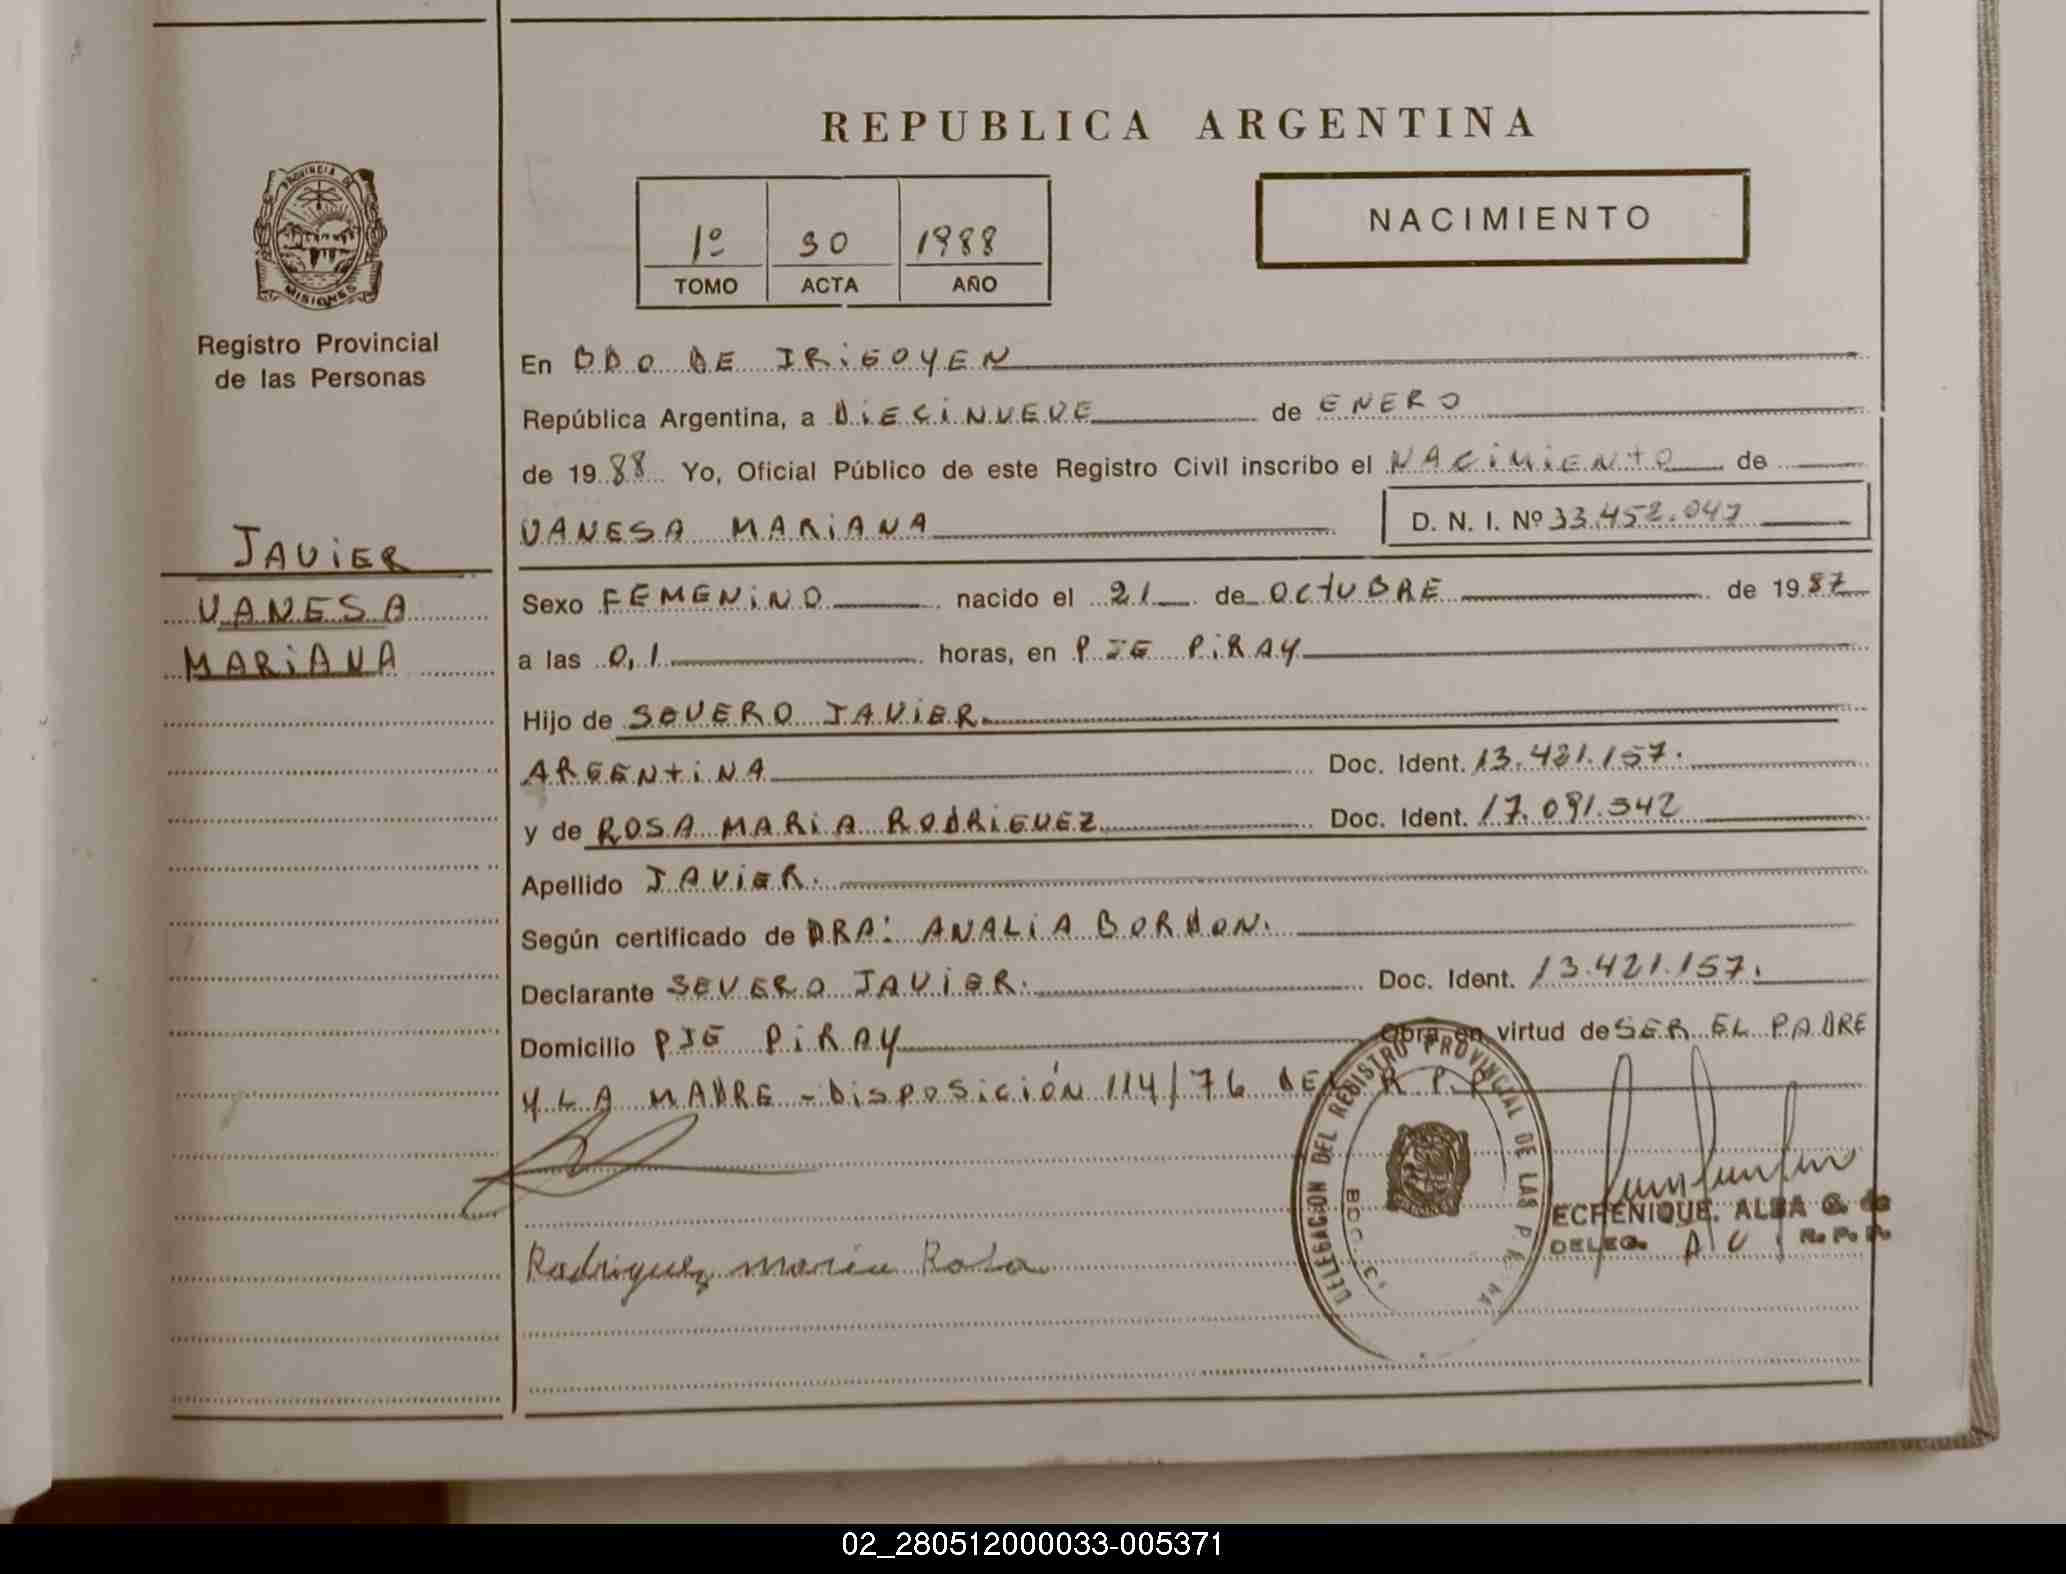 REPUBLICA ARGENTINA
NACIMIENTO
1º 30 1988
TOMO ACTA AÑO
PROVINCIA DE
MISIONES
Registro Provincial
de las Personas
JAVIER
VANESA
MARIANA
En BDO DE IRIGOYEN
República Argentina, a DIECINUEVE de ENERO
de 1988 Yo, Oficial Público de este Registro Civil inscribo el NACIMIENTO de
VANESA MARIANA D. N. I. Nº 33.452.047
Sexo FEMENINO nacido el 21 de OCTUBRE de 1987
a las 0,1 horas, en PJE PIRAY
Hijo de SEVERO JAVIER
ARGENTINA Doc. Ident. 13.421.157.
y de ROSA MARIA RODRIGUEZ Doc. Ident. 17.091.342
Apellido JAVIER.
Según certificado de DRA: ANALIA BORDON.
Declarante SEVERO JAVIER. Doc. Ident. 13.421.157.
Domicilio PJE PIRAY Obra en virtud de SER EL PADRE
Y LA MADRE - DISPOSICIÓN 114/76 DEL R.P.P.
DELEGACION DEL REGISTRO PROVINCIAL DE LAS
Rodriguez maria Rosa
ECHENIQUE, ALBA G. de
DELEG. R.P.P.
02_280512000033-005371